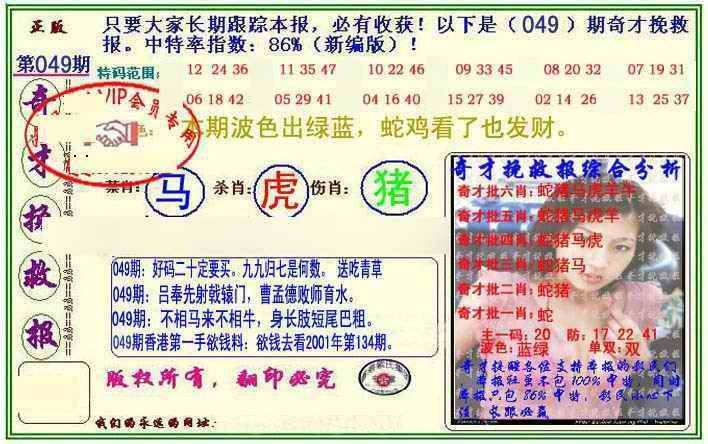 正版
只要大家长期跟踪本报，必有收获！以下是（049）期奇才挽救
报。中特率指数：86%（新编版）！
第049期
特码范围：
12 24 36
11 35 47
10 22 46
09 33 45
08 20 32
07 19 31
06 18 42
05 29 41
04 16 40
15 27 39
02 14 26
13 25 37
VIP会员专用
本期波色出绿蓝，蛇鸡看了也发财。
奇
才
救
报
禁肖：
马
杀肖：
虎
伤肖：
猪
奇才挽救报综合分析
奇才批六肖：蛇猪马虎羊牛
奇才批五肖：蛇猪马虎羊
奇才批四肖：蛇猪马虎
奇才批三肖：蛇猪马
奇才批二肖：蛇猪
奇才批一肖：蛇
主一码：20 防：17 22 41
波色：蓝绿 单双：双
奇才提醒各位支持本报的彩民们
本报并不包100%中特，同时
本报只包86%中特，彩民小心下
注，长跟必赢
049期：好码二十定要买。九九归七是何数。 送吃青草
049期：吕奉先射戟辕门，曹孟德败师育水。
049期：不相马来不相牛，身长肢短尾巴粗。
049期香港第一手欲钱料：欲钱去看2001年第134期。
版权所有，翻印必究
我们的永远的网址：